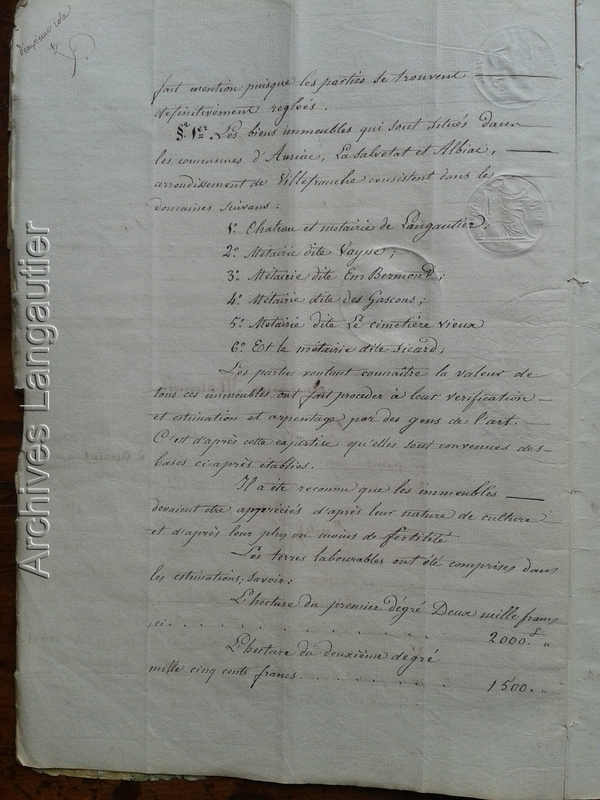 deuxième role
fait mention puisque les parties se trouvent
définitivement reglées.
§e. 1er. Les biens immeubles qui sont situés dans
les communes d'Auriac, La Salvetat et Albiac,
arrondissement de Villefranche consistent dans les
domaines suivans:
1º Chateau et métairie de Langautier;
2º Métairie dite Vaysse;
3º Métairie dite Em Bermond;
4º Métairie dite des Gascons;
5º Métairie dite Le cimetière vieux
6º Et la métairie dite Sicard;
Les parties voulant connaître la valeur de
tous ces immeubles ont fait proceder à leur verification
et estimation et arpentage par des gens de l'art.
C'est d'après cette expertise qu'elles sont convenues des
bases ci-après établies.
Il a été reconnu que les immeubles
devaient etre appréciés d'après leur nature de culture
et d'après leur plus ou moins de fertilité
Les terres labourables ont été comprises dans
les estimations, savoir:
L'hectare du premier dégré Deux mille francs
ci. . . . . . . . . . 2000.f "
L'hectare du deuxième dégré
mille cinq cents francs. . . . . . . . . 1500. "
Archives Langautier